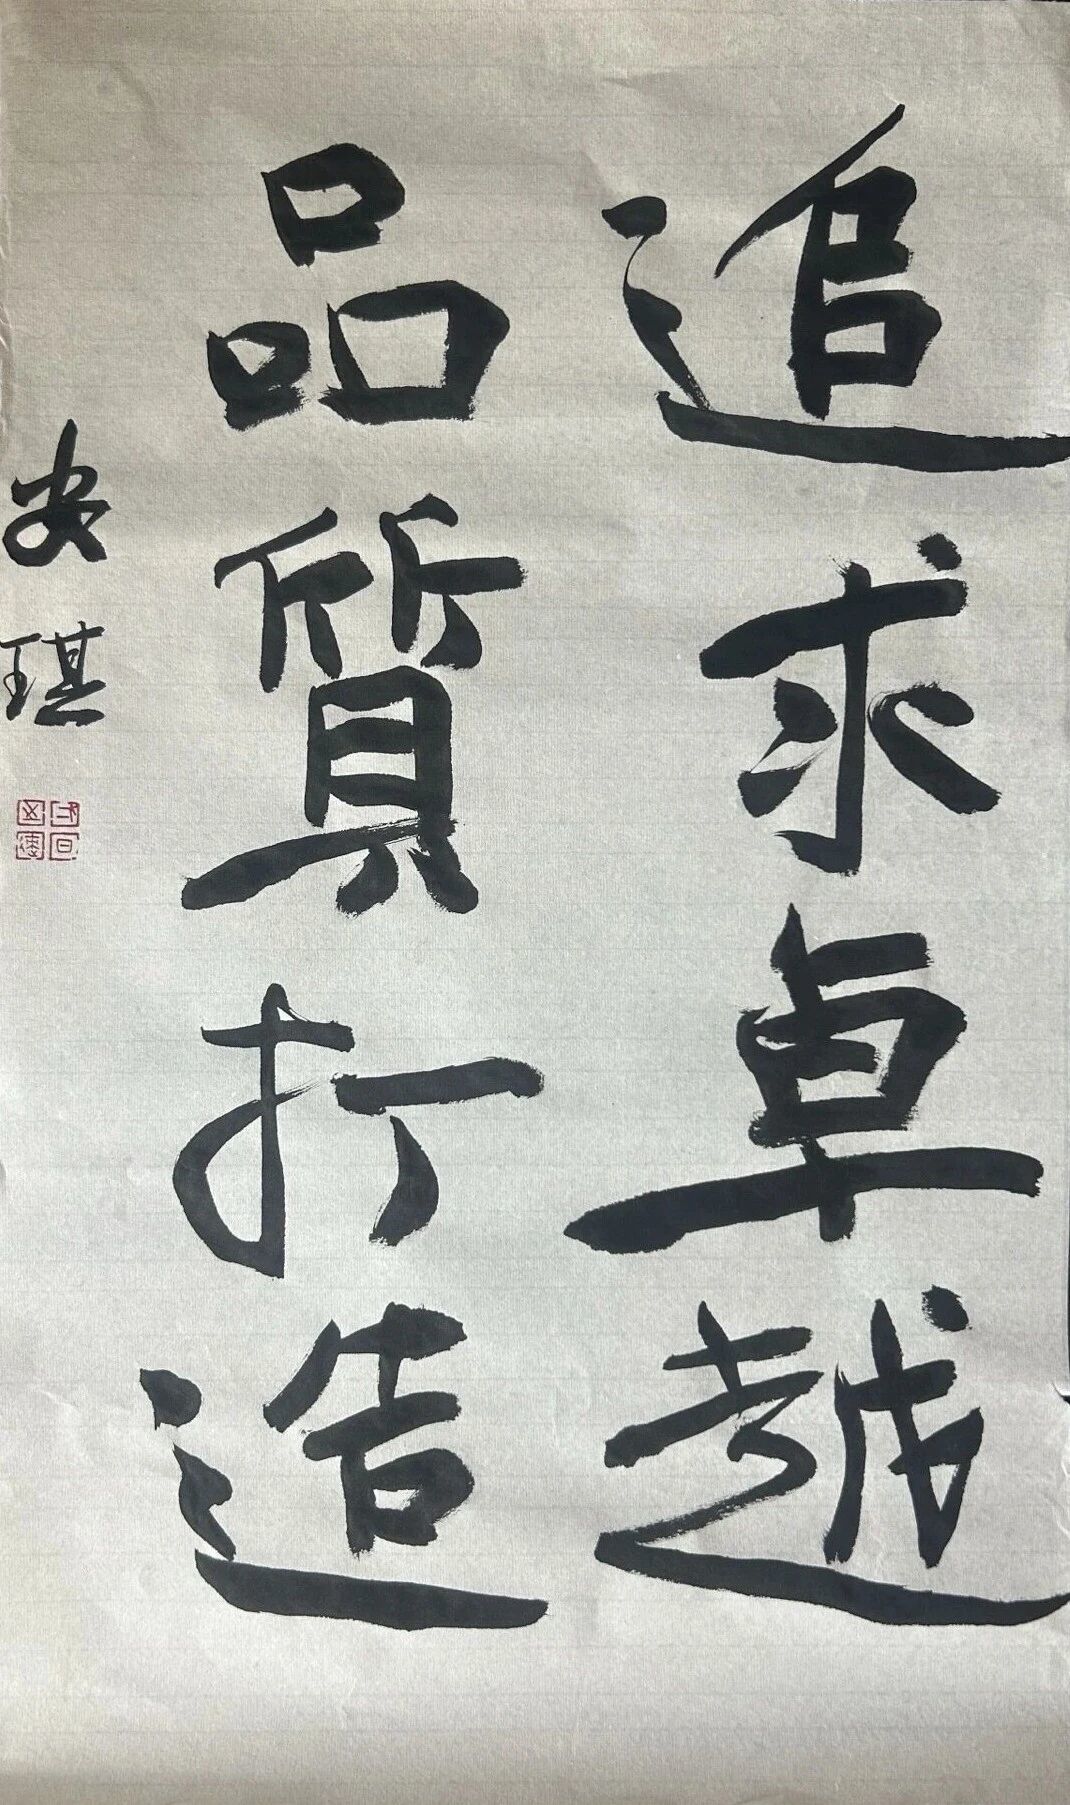 追求卓越
品質打造
安琪